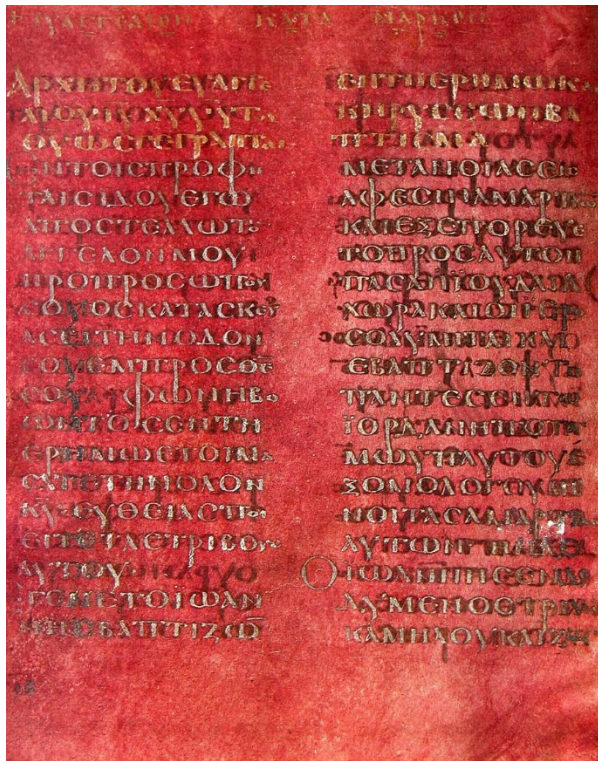 ΕΥΑΓΓΕΛΙΟΝ ΚΑΤΑ ΜΑΡΚΟΝ
ΑΡΧΗ ΤΟΥ ΕΥΑΓΓΕ
ΛΙΟΥ ΙΥ ΧΥ ΥΥ ΤΟΥ
ΘΥ ΩϹ ΓΕΓΡΑΠΤΑΙ
ΕΝ ΤΟΙϹ ΠΡΟΦΗ
ΤΑΙϹ ΙΔΟΥ ΕΓΩ
ΑΠΟϹΤΕΛΛΩ ΤΟΝ
ΑΓΓΕΛΟΝ ΜΟΥ
ΠΡΟ ΠΡΟϹΩΠΟΥ
ϹΟΥ ΟϹ ΚΑΤΑϹΚΕΥ
ΑϹΕΙ ΤΗΝ ΟΔΟΝ
ϹΟΥ ΕΜΠΡΟϹΘΕ̅
ϹΟΥ ΦΩΝΗ ΒΟ
ΩΝΤΟϹ ΕΝ ΤΗ
ΕΡΗΜΩ ΕΤΟΙΜΑ
ϹΑΤΕ ΤΗΝ ΟΔΟΝ
ΚΥ ΕΥΘΕΙΑϹ ΠΟΙ
ΕΙΤΕ ΤΑϹ ΤΡΙΒΟΥϹ
ΑΥΤΟΥ
ΕΓΕΝΕΤΟ ΙΩΑΝ
ΝΗϹ ΒΑΠΤΙΖΩ̅
ΕΝ ΤΗ ΕΡΗΜΩ ΚΑΙ
ΚΗΡΥϹϹΩΝ ΒΑ
ΠΤΙϹΜΑ
ΜΕΤΑΝΟΙΑϹ ΕΙϹ
ΑΦΕϹΙΝ ΑΜΑΡΤΙΩ̅
ΚΑΙ ΕΞΕΠΟΡΕΥΕ
ΤΟ ΠΡΟϹ ΑΥΤΟΝ
ΠΑϹΑ Η ΙΟΥΔΑΙΑ
ΧΩΡΑ ΚΑΙ ΟΙ ΙΕΡΟ
ϹΟΛΥΜΙΤΑΙ ΚΑΙ
ΕΒΑΠΤΙΖΟΝΤΟ
ΠΑΝΤΕϹ ΕΝ ΤΩ
ΙΟΡΔΑΝΗ ΠΟΤΑ
ΜΩ ΥΠ ΑΥΤΟΥ Ε
ΞΟΜΟΛΟΓΟΥΜΕ
ΝΟΙ ΤΑϹ ΑΜΑΡΤΙΑϹ
ΑΥΤΩΝ ΗΝ ΔΕ
Ο ΙΩΑΝΝΗϹ ΕΝΔΕ
ΔΥΜΕΝΟϹ ΤΡΙΧΑϹ
ΚΑΜΗΛΟΥ ΚΑΙ ΖΩ